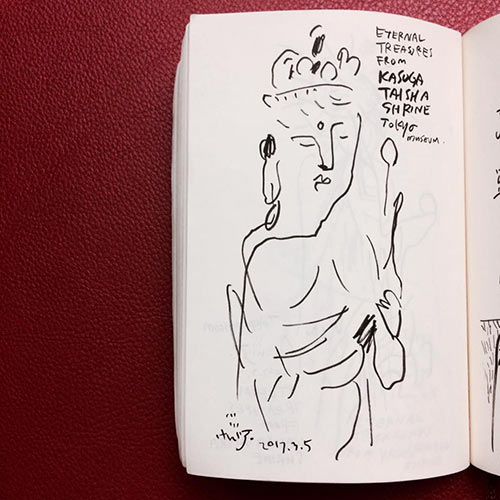 ETERNAL
TREASURES
FROM
KASUGA
TAISHA
SHRINE
TOKYO
MUSEUM.
2017.3.5